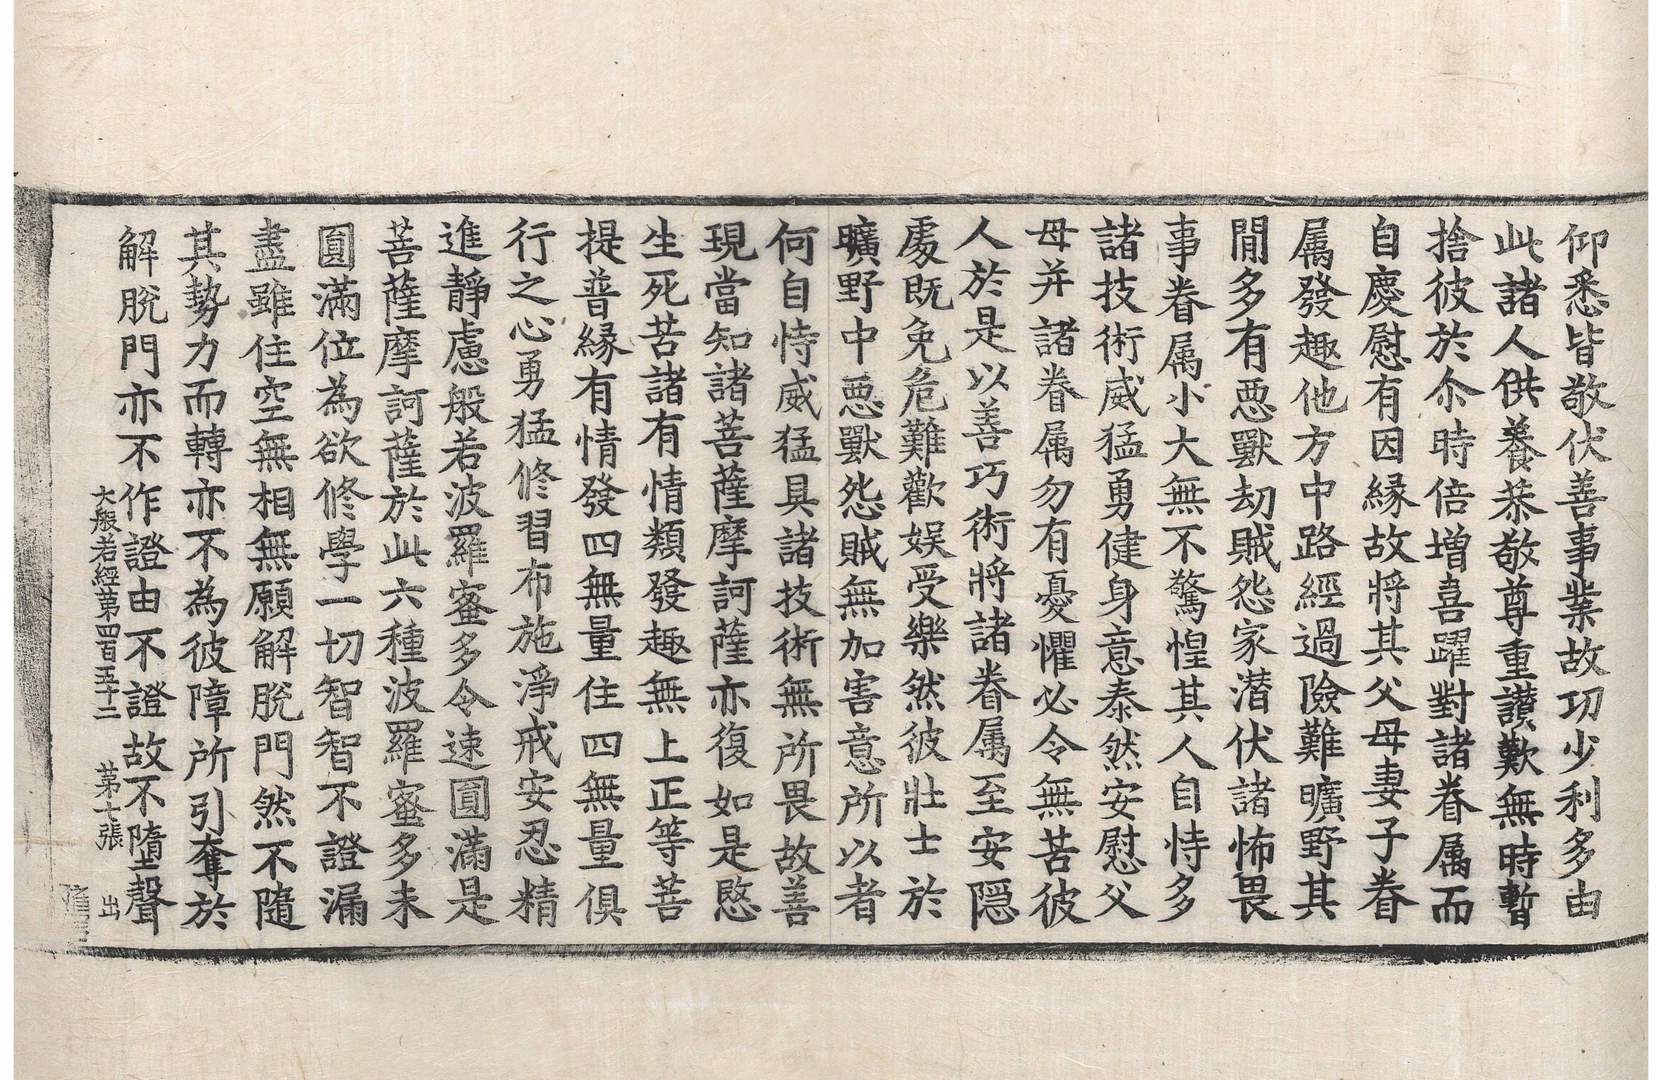 仰悉皆敬伏善事業故功少利多由
此諸人供養恭敬尊重讃歎無時暫
捨彼於尒時倍增喜躍對諸眷属而
自慶慰有因緣故將其父母妻子眷
属發趣他方中路經過險難曠野其
閒多有惡獸劫賊怨家潛伏諸怖畏
事眷属小大無不驚惶其人自恃多
諸技術威猛勇健身意泰然安慰父
母并諸眷属勿有憂懼必令無苦彼
人於是以善巧術將諸眷属至安隱
處既免危難歡娛受樂然彼壯士於
曠野中惡獸怨賊無加害意所以者
何自恃威猛具諸技術無所畏故善
現當知諸菩薩摩訶薩亦復如是愍
生死苦諸有情類發趣無上正等菩
提普緣有情發四無量住四無量俱
行之心勇猛修習布施淨戒安忍精
進靜慮般若波羅蜜多令速圓滿是
菩薩摩訶薩於此六種波羅蜜多未
圓滿位為欲修學一切智智不證漏
盡雖住空無相無願解脫門然不隨
其勢力而轉亦不為彼障所引奪於
解脫門亦不作證由不證故不墮聲
大般若經第四百五十二 第七張 出